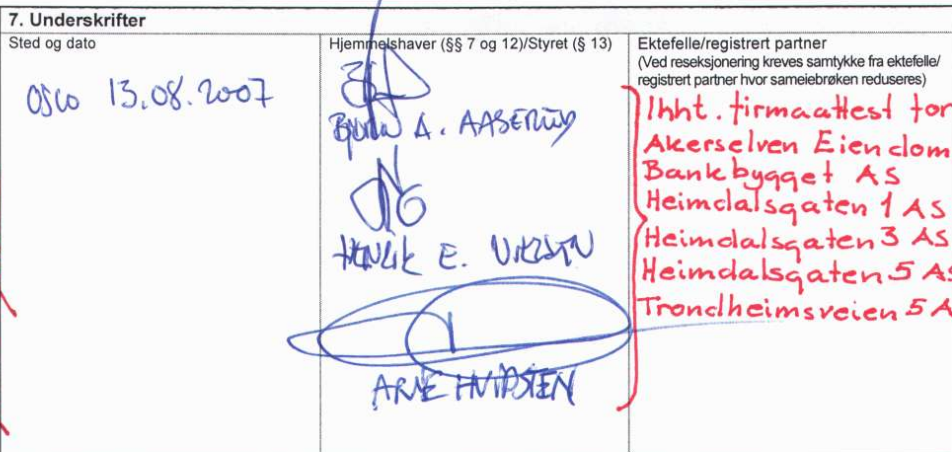 7. Underskrifter
Sted og dato
OSLO 13.08.2007
Hjemmelshaver (§§ 7 og 12)/Styret (§ 13)
A. AASERUD
HENRIK E.
ARNE HVIDSTEN
Ektefelle/registrert partner
(Ved reseksjonering kreves samtykke fra ektefelle/
registrert partner hvor sameiebrøken reduseres)
Ihht. firmaattest for
Akerselven Eiendom
Bankbygget AS
Heimdalsgaten 1 AS
Heimdalsgaten 3 AS
Heimdalsgaten 5 AS
Trondheimsveien 5 A